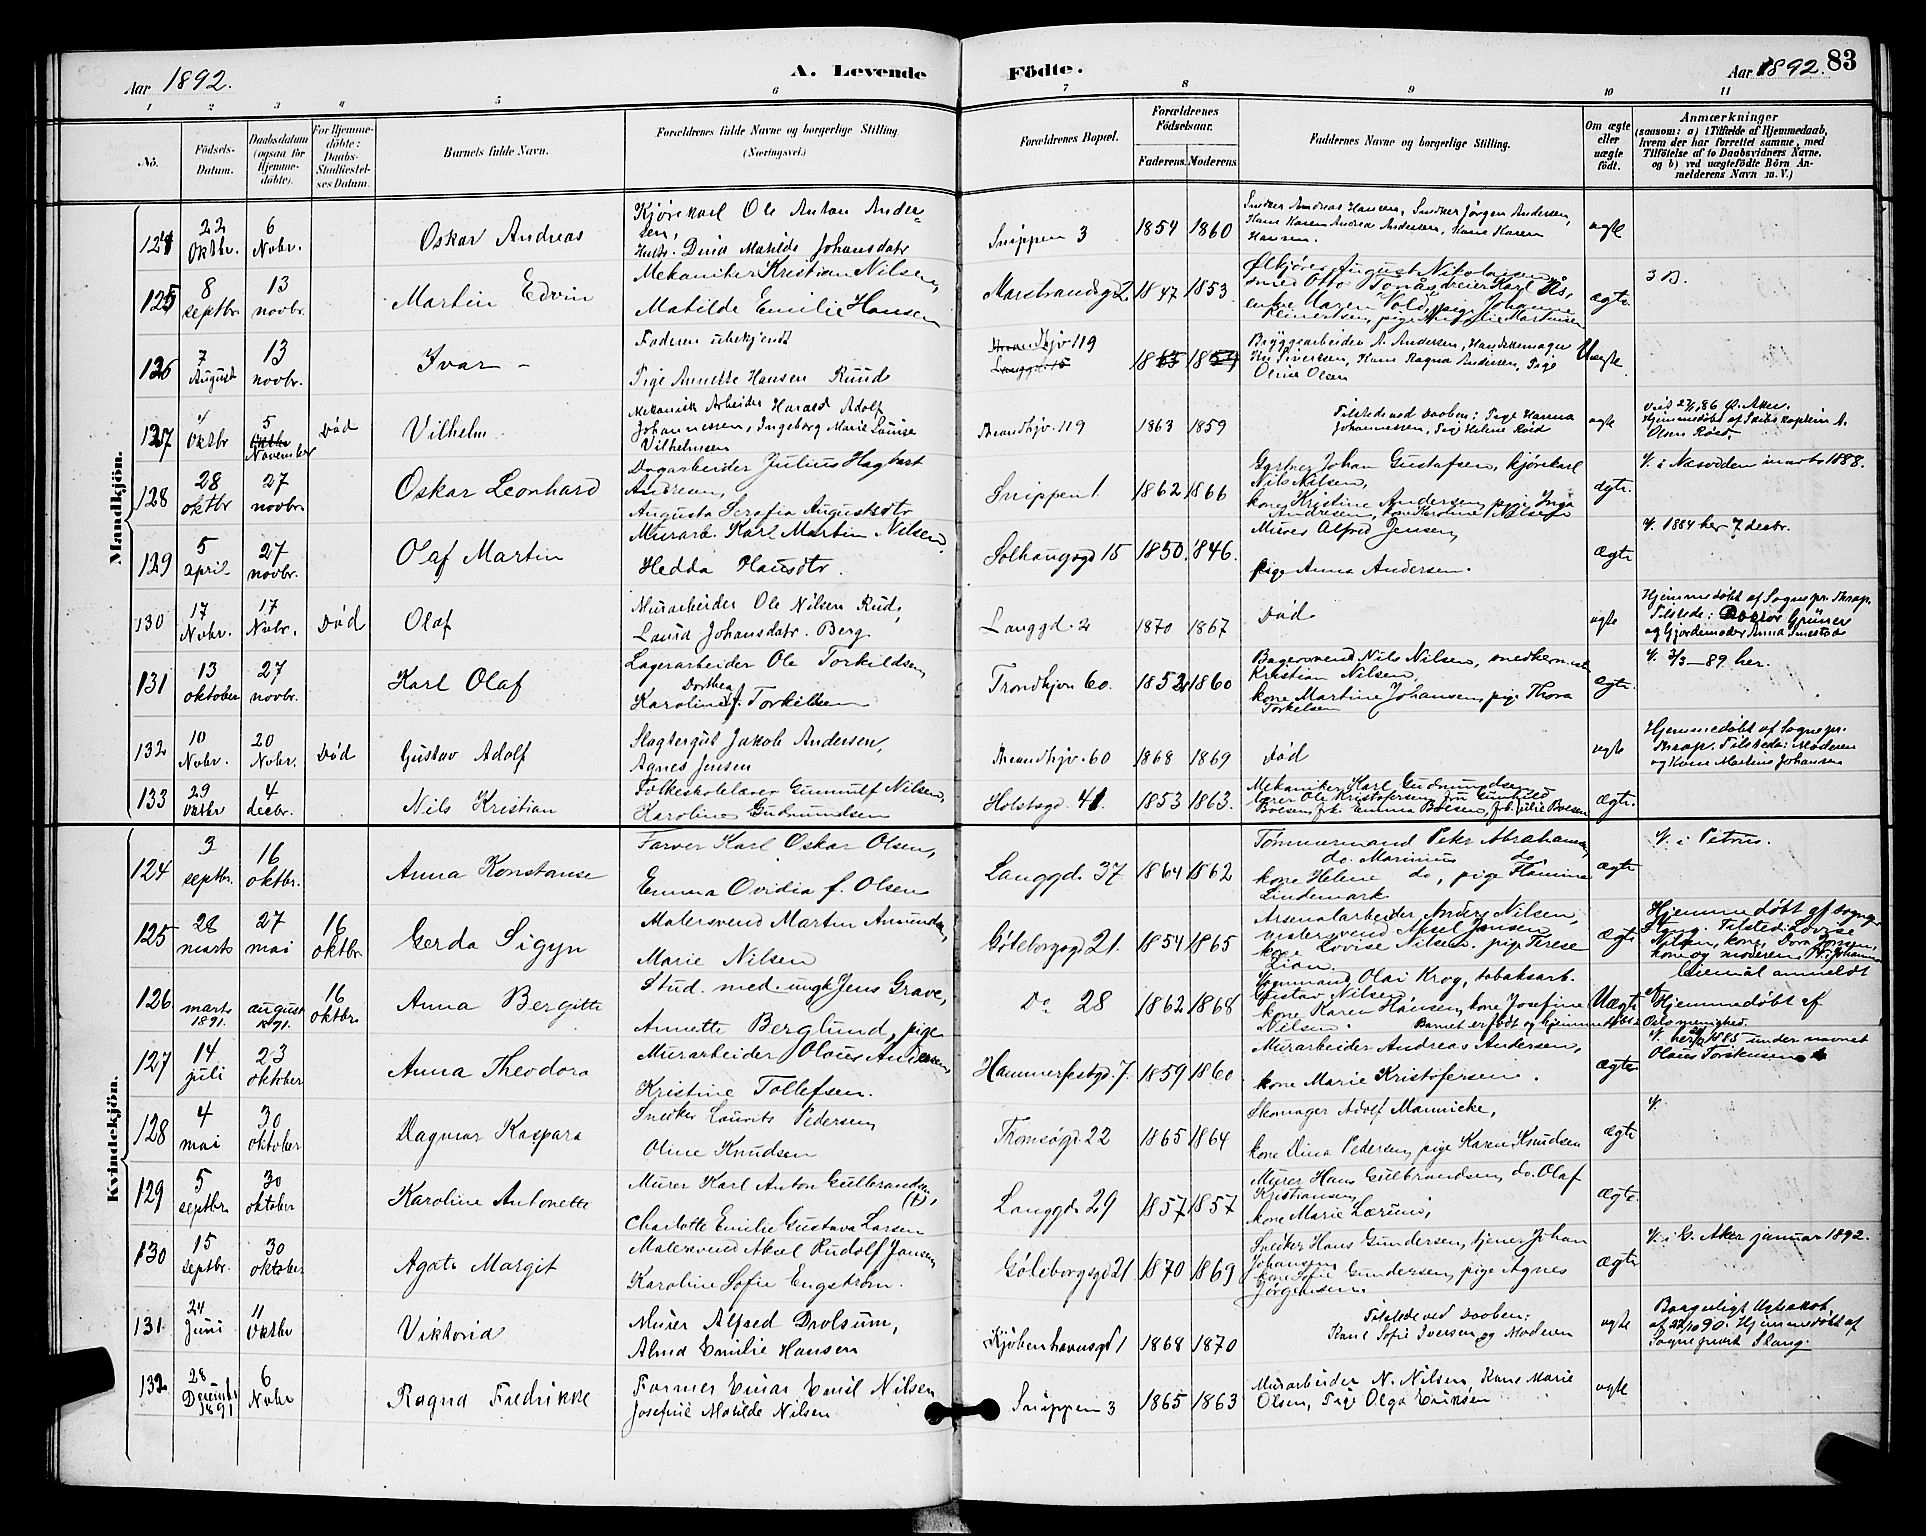 Aar 1892.
A. Levende
Födte.
Aar 1892. 83
1 2 3 4 5 6 7 8 9 10 11
No.
Födsels-
Datum.
Daabsdatum
(ogsaa for
Hjemme-
döbte).
For Hjemme-
döbte:
Daabs-
Stadfæstel-
ses Datum.
Barnets fulde Navn.
Forældrenes fulde Navne og borgerlige Stilling.
(Næringsvei.)
Forældrenes Bopæl.
Forældrenes
Födselsaar.
Faderens. Moderens.
Faddernes Navne og borgerlige Stilling.
Om ægte
eller
uægte
födt.
Anmærkninger
(saasom: a) i Tilfælde af Hjemmedaab,
hvem der har forrettet samme, med
Tilföielse af to Daabsvidners Navne,
og b) ved uægtefödte Börn An-
melderens Navn m. V.)
Mandkjön.
124 22 Oktbr. 6 Novbr. Oskar Andreas
Kjørekarl Ole Anton Ander-
sen,
Hustr. Dina Matilde Johansdatr
Snippen 3 1854 1860
Snedker Andreas Hansen, Snedker Jørgen Andersen,
Kone Karen Andrea Andersen, Kone Karen
Hansen.
ægte
125 8 septbr. 13 novbr. Martin Edvin
Mekaniker Kristian Nilsen,
Matilde Emilie Hansen
Marstrandsgd 2. 1847 1853.
Ølkjører August Nikolaisen,
smed Otto Karl Ås,
enke Maren Vold, pige Johanne
Reinertsen, pige Martinsen
ægte
3 B.
126 7 August 13 novbr. Ivar -
Faderen ubekjendt
Pige Annette Hansen Ruud
Trondhjv 119
Langgd. 15
1865 1859
Bryggearbeider A. Andersen, Handskemager
Iversen, Kone Ragna Andersen, Pige
Olina Olsen
Uægte
127 4 Oktbr 5 Oktbr November Død Vilhelm
Mekanisk Arbeider Harald Adolf
Johannessen, Ingeborg Marie Louise
Vilhelmsen
Trondhjv. 119 1863 1859
Tilstede ved Daaben: Pige Hanna
Johannessen, Pige Helene Røed
ægte
Viet 27/ 86 Ø. Aker.
Hjemmedøbt af Skibskaptein A.
Olsen Røed.
128 28 oktbr 27 novbr. Oskar Leonhard
Dagarbeider Julius Hagbart
Andresen,
Augusta Serafia Augustsdtr
Snippen 1 1862 1866
Gartner Johan Gustafsen, kjørekarl
Nils Nilsen,
kone Kristine Andersen, pige Inga
Andresen, kone Karoline Nilsen
ægte.
V. i Næsodden marts 1888.
129 5 april 27 novbr. Olaf Martin
Murarb. Karl Martin Nilsen,
Hedda Olausdtr.
Solhaugsgd 15 1850. 1846.
Murer Alfred Jensen,
pige Anna Andersen.
ægte
V. 1884 her 7 decbr.
130 17 Novbr. 17 Novbr. Død Olaf
Murarbeider Ole Nilsen Rud,
Laura Johansdatr. Berg
Langgd. 2 1870 1867
Død
ægte
Hjemmedøbt af Sognepr. Thrap.
Tilstede: Doctor Grüner
og Gjordemoder Anna Smestad
131 13 oktober 27 novbr. Karl Olaf
Lagerarbeider Ole Torkildsen,
Dorthea
Karoline f. Torkilsen
Trondhjv 60. 1852 1860
Bagersvend Nils Nilsen, snedkersv.
Kristian Nilsen,
kone Martine Johansen, pige Thora
Torkelsen
ægte.
V. 3/3 - 89 her.
132 10 Novbr. 20 Novbr. Død Gustav Adolf
Slagtergut Jakob Andersen,
Agnes Jensen
Trondhjv. 60 1868 1869
Død
ægte
Hjemmedøbt af Sognepr.
Thrap. Tilstede: Moderen
og Kone Martine Johansen
133 29 Oktbr 4 decbr. Nils Kristian
Folkeskolelærer Gunnulf Nilsen,
Karoline Gudmundsen
Holstsgd. 41. 1853 1863.
Mekaniker Karl Gudmundsen,
lærer Ole Kristofersen, fru Gunhild
Boesen, frk. Emma Boesen, frk. Julie Boesen
ægte.
Kvindekjön.
124 3 septbr. 16 oktbr. Anna Konstanse
Farver Karl Oskar Olsen,
Emma Ovidia f. Olsen
Langgd. 37 1864 1862
Tømmermand Peter Abrahamsen,
do. Marinius do.
kone Helene do, pige Flamine
Lindemark.
ægte
V. i Petrus.
125 28 marts 27 mai 16 oktbr. Gerda Sigyn
Malersvend Martin Amundsen,
Marie Nilsen
Göteborgsgd 21. 1854 1865
Arsenalarbeider Anders Nilsen,
Axel Jansen
kone Lovise Nilsen. pige Terese
Lian.
ægte
Hjemmedøbt af Sognepr.
Skaug. Tilsted: Lovise
Nilsen, kone, Dora Jonsen,
kone og moderen. V. i Johannes
126 marts 1891. august 1891. 16 oktbr. Anna Bergitte
Stud. med. ungk. Jens Grave,
Annette Berglund, pige
Do 28 1862 1868
Formand Olai Krog, tobaksarb.
Gustav Nilsen,
kone Karen Hansen, kone Josefine
Nilsen. Barnet er født og hjemmedøbt i
Uægte
Leiemål anmeldt
Hjemmedøbt af
Oslo menighed.
127 14 juli 23 oktober Anna Theodora
Murarbeider Olaus Andersen,
Kristine Tollefsen.
Hammerfestgd. 7. 1859 1860
Murarbeider Andreas Andersen,
kone Marie Kristofersen.
ægte
V. her 1885 under navnet
Olaus Torstensen
128 4 mai 30 oktober Dagmar Kaspara
Snedker Laurits Pedersen,
Oline Knudsen
Tromsøgd 22 1865 1864
Skomager Adolf Mannicke,
kone Dina Pedersen, pige Karen Knudsen
ægte
V.
129 5 septbr. 30 oktober Karoline Antonette
Murer Karl Anton Gulbrandsen
(†),
Charlotte Emilie Gustava Larsen
Langgd. 29 1857 1857
Murer Hans Gulbrandsen, do. Olaf
Kristiansen,
kone Marie Lærum,
ægte.
130 15 septbr. 30 oktober Agate Margit
Malersvend Aksel Rudolf Jansen,
Karoline Sofie Engström.
Göteborgsgd 21 1870 1869
Snedker Hans Gundersen, tjener Johan
Johansen,
kone Sofie Gundersen, pige Agnes
Jørgensen.
ægte
V. i G. Aker januar 1892.
131 24 Juni 11 Oktbr Viktoria
Murer Alfred Drolsum,
Alma Emilie Hansen
Kjøbenhavnsgd 1 1868 1870
Tilstede ved Daaben:
Kone Sofie Iversen og Moderen
ægte
Borgerligt Ægteskab
af 22/10 90. Hjemmedøbt af
Sogneprest Skaug
132 28 December 1891 6 Novbr Ragna Fredrikke
Former Einar Emil Nilsen
Josefine Matilde Nilsen
Snippen 3 1865 1863
Murarbeider N. Nilsen, Kone Marie
Olsen, Pige Olga Eriksen
ægte